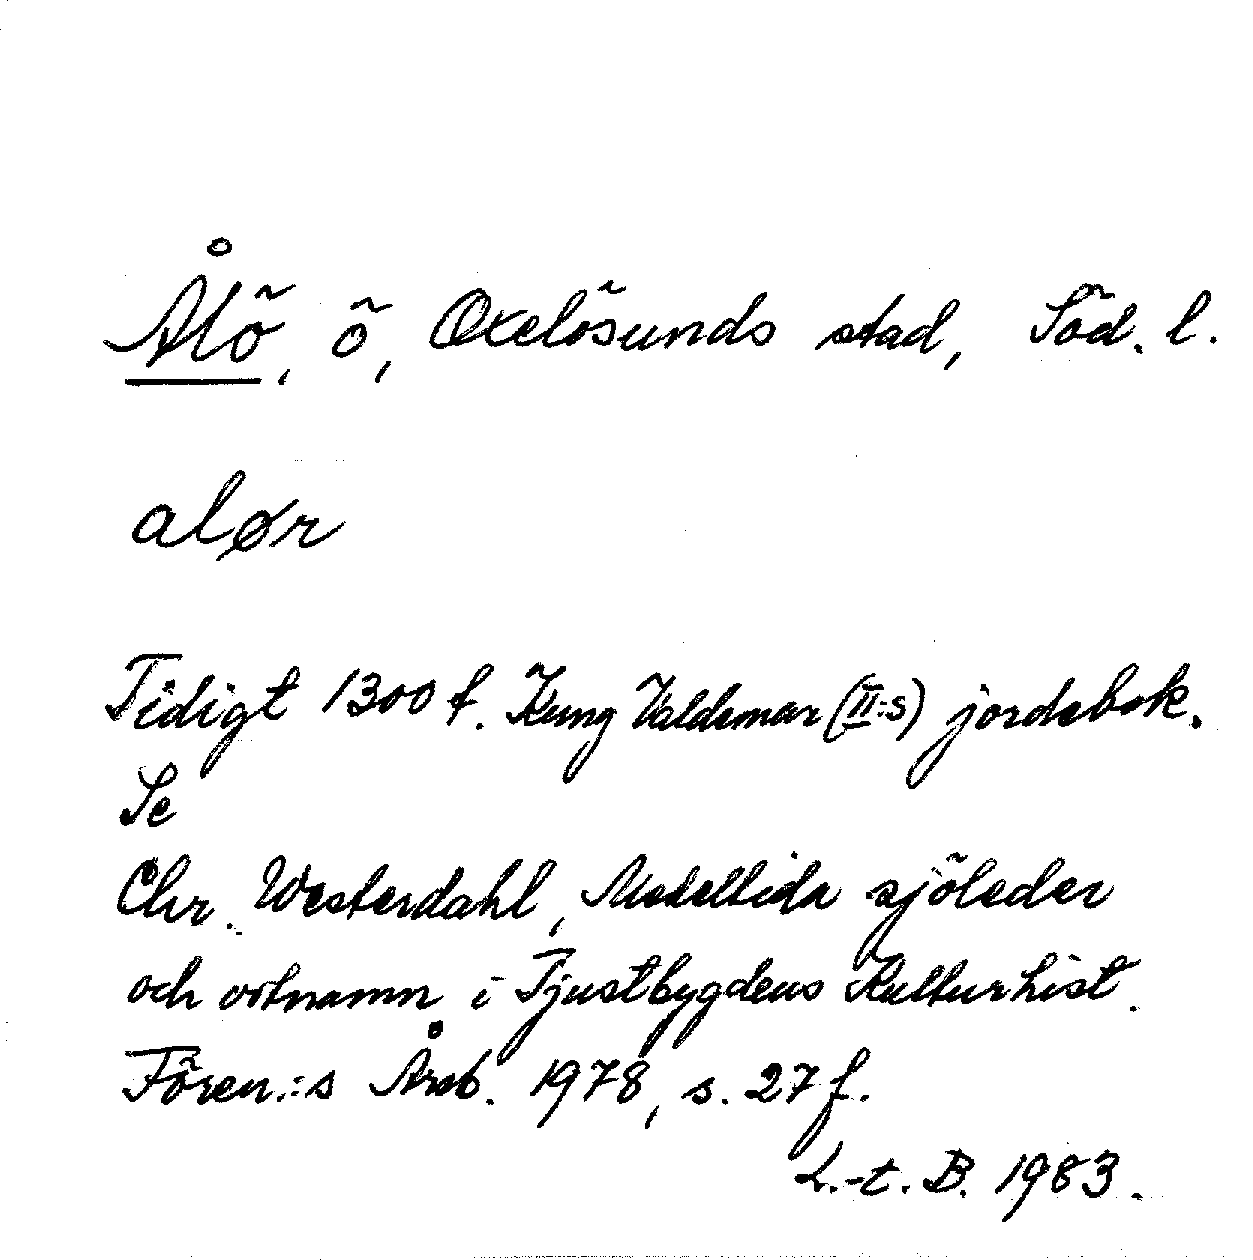 Ålö, ö, Oxelösunds stad, Söd. l.
alør
Tidigt 1300 t. Kung Valdemar (II:s) jordebok.
Se
Chr. Westerdahl, Medeltida sjöleder
och ortnamn i Tjustbygdens Kulturhist.
Fören.:s Årsb. 1978, s. 27 f.
L.-t. B. 1983.